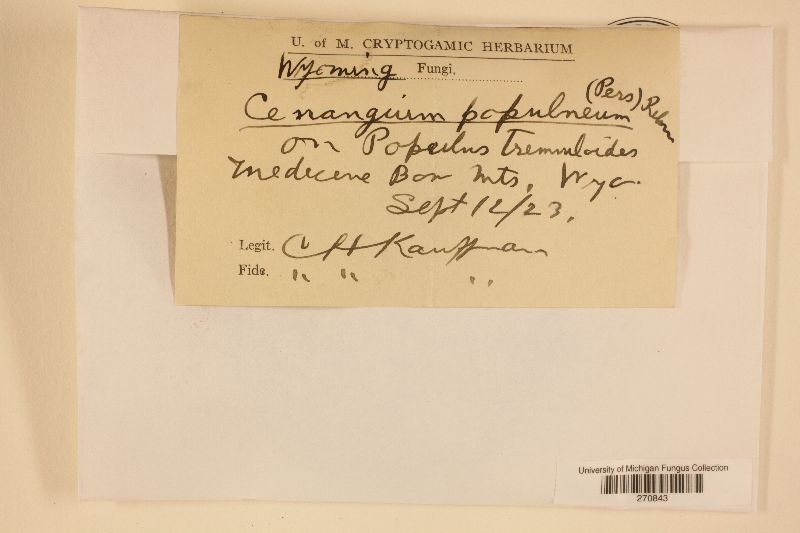 U. of M. CRYPTOGAMIC HERBARIUM
Wyoming Fungi.
Cenangium populneum (Pers) Rehm
on Populus Tremuloides
Medecene Bow Mts, Wyo.
Sept 12/23.
Legit. C H Kauffman
Fide. " " "
University of Michigan Fungus Collection
270843